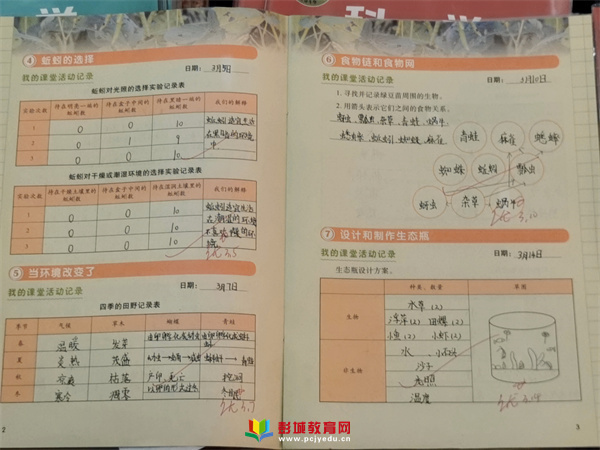 科 学
④ 蚯蚓的选择
日期：
我的课堂活动记录
蚯蚓对光照的选择实验记录表
实验次数 待在明亮一端的蚯蚓数 待在盒子中间的蚯蚓数 待在黑暗一端的蚯蚓数 我们的解释
1 0 0 10
2 0 1 9
3 0 0 10
蚯蚓对干燥或潮湿环境的选择实验记录表
实验次数 待在干燥土壤里的蚯蚓数 待在盒子中间的蚯蚓数 待在湿润土壤里的蚯蚓数 我们的解释
1 0 0 10
2 0 0 10
3 0 0 10
⑤ 当环境改变了
我的课堂活动记录 日期： 3月7日
四季的田野记录表
季节 气候 草木 蝴蝶 青蛙
春 温暖 发芽
夏 炎热 茂盛
秋 枯落
冬 寒冷 凋零
2
⑥ 食物链和食物网
我的课堂活动记录 日期： 3月10日
1. 寻找并记录绿豆苗周围的生物。
2. 用箭头表示它们之间的食物关系。
蚜虫、瓢虫、杂草、青蛙、蜗牛
青蛙 麻雀 蟋蟀
蜘蛛 蚯蚓 瓢虫
蚜虫 杂草 蜗牛
⑦ 设计和制作生态瓶
我的课堂活动记录 日期： 3月14日
生态瓶设计方案。
种类、数量 草图
生物 水草(2)
浮萍(2) 田螺(2)
小鱼(2) 小虾(2)
非生物 水、
沙子
光照
温度
3
彭城教育网
www.pcjyedu.cn